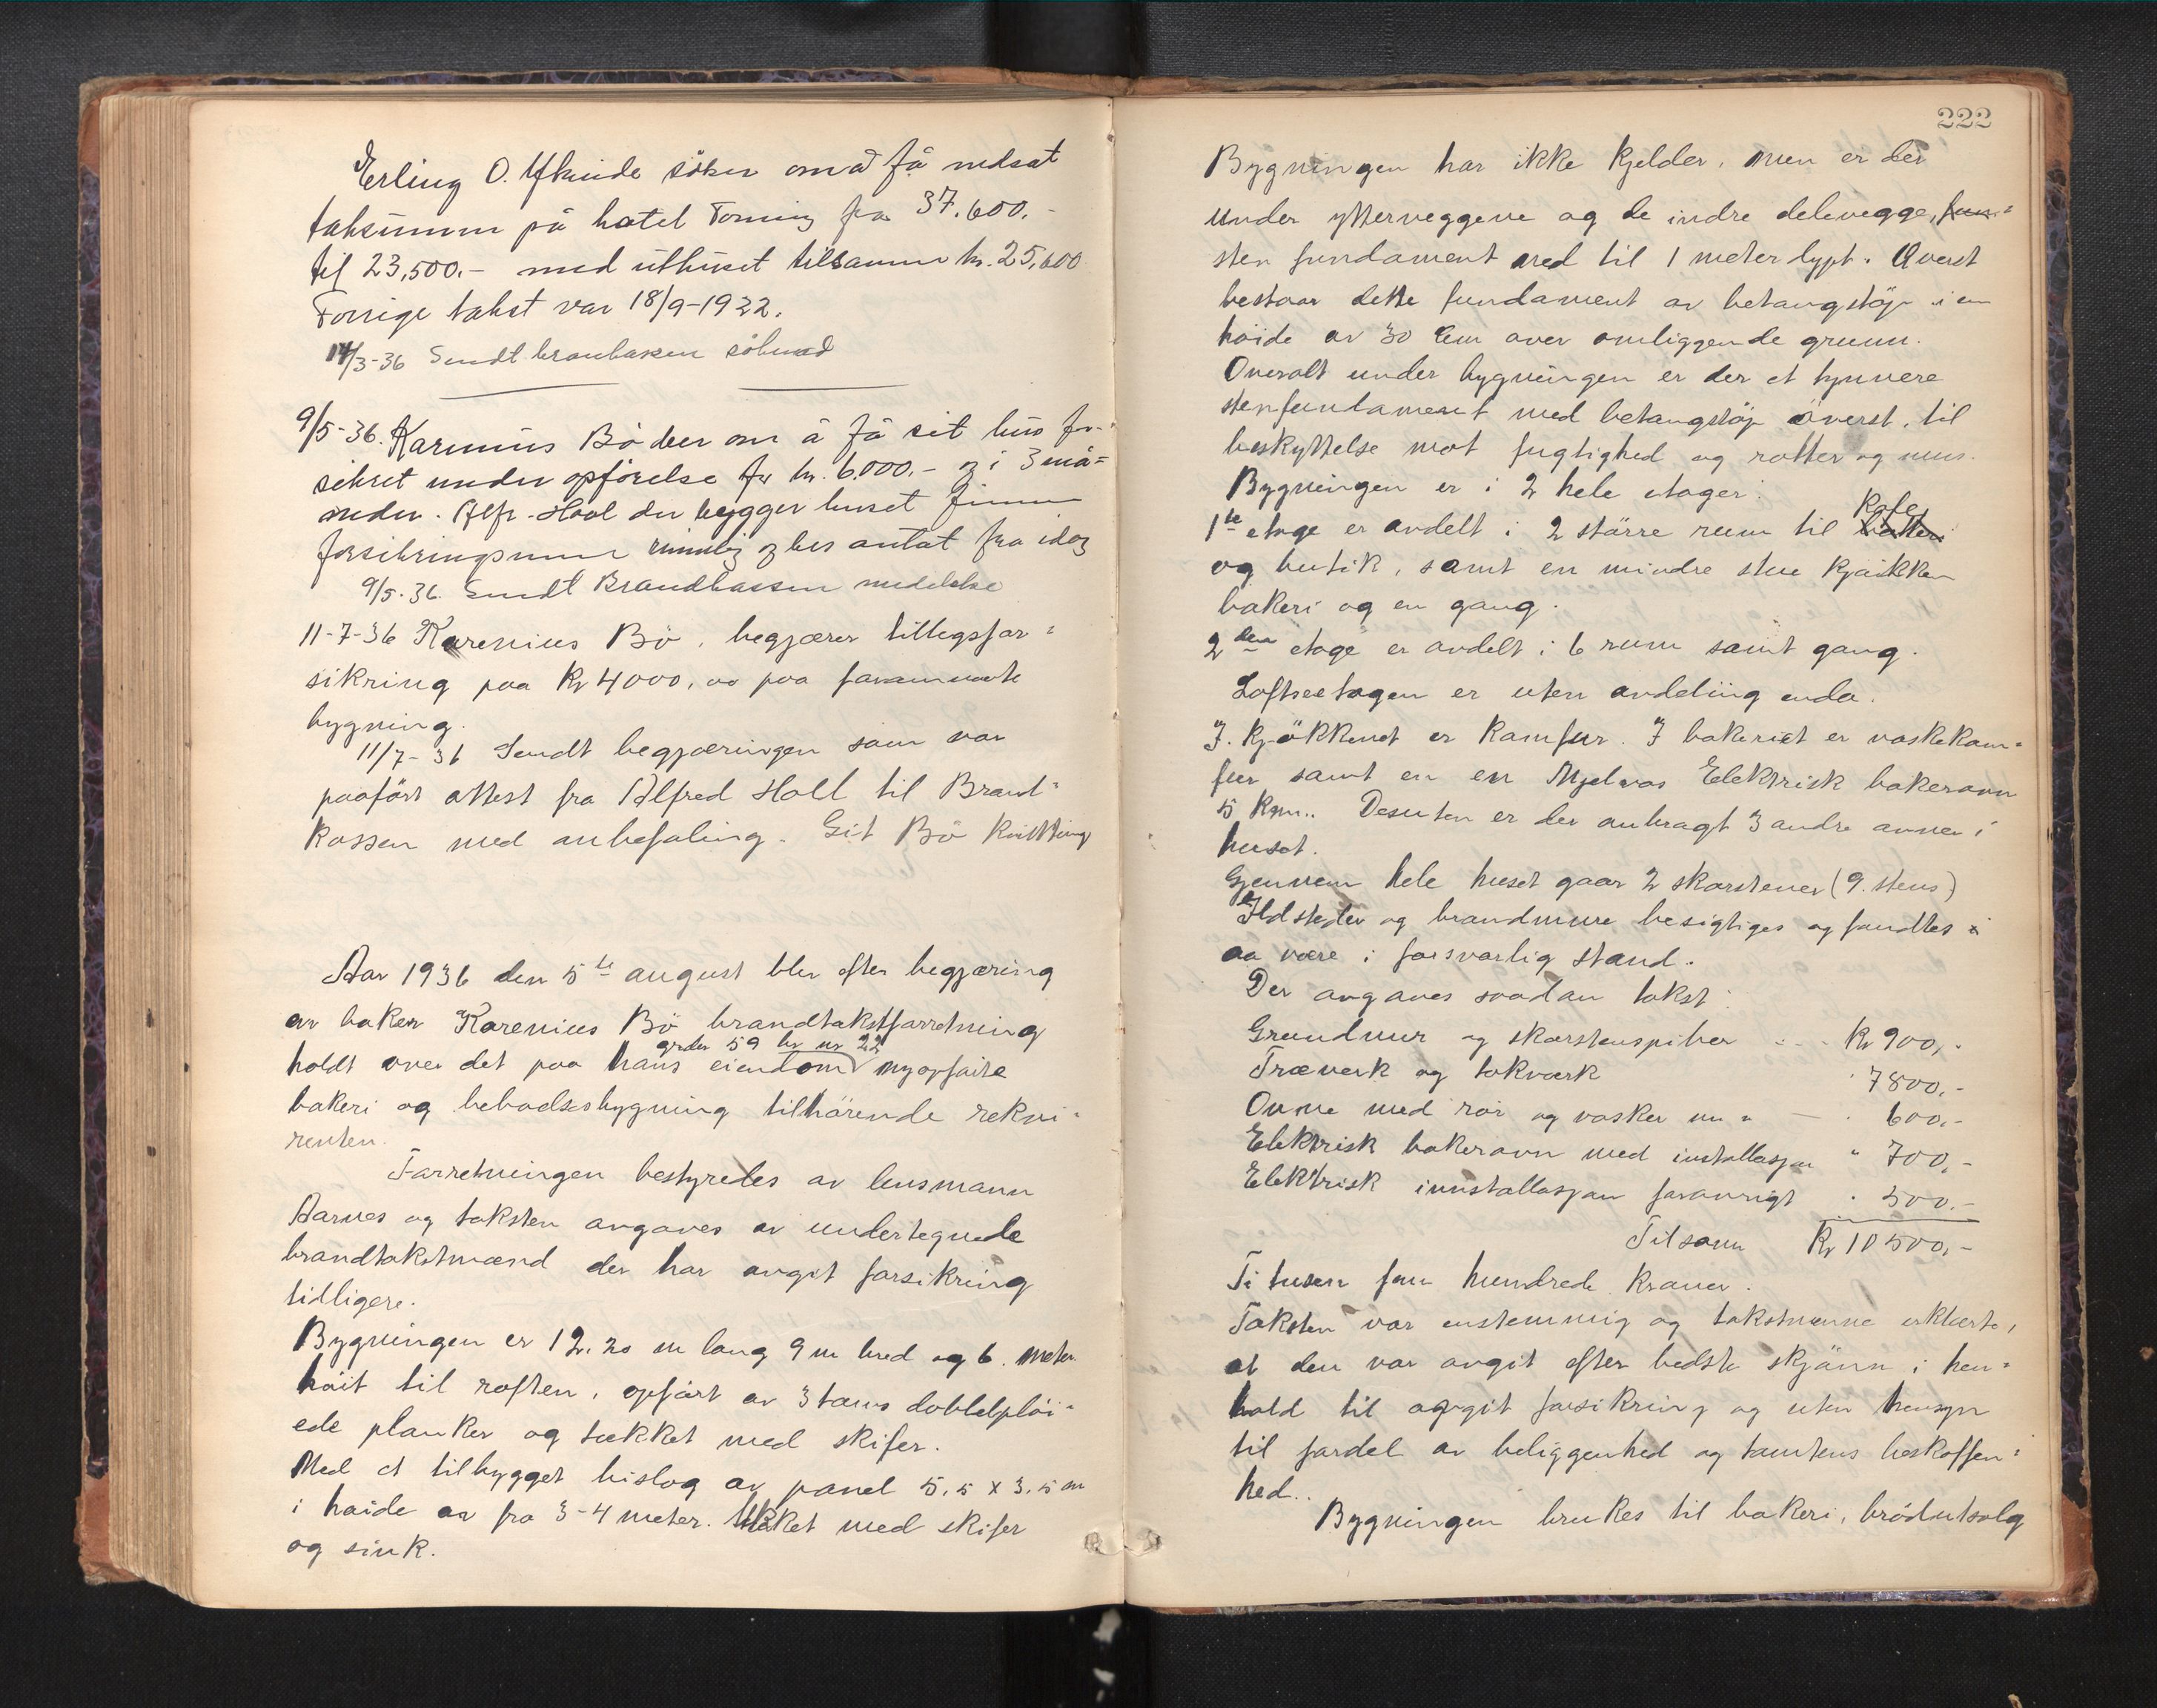 Erling O. söker om å få nedsat
taksumm på hotel Torning fra 37.600.-
til 23,500.- med uthuset tilsamm kr. 25,600
Forrige takst var 18/9-1922.
14/3-36 Sendt brankassen söknad
9/5-36. Karenius Bö ber om å få sit hus for-
sikret under opförelse for kr. 6.000.- og i 3 må=
neder. Alfr. Hool der bygger huset finner
forsikringssumm rimelig og bes antat fra idag
9/5-36. Sendt Brandkassen meddelelse
11-7-36 Karenius Bö, begjærer tillegsfor=
sikring paa Kr 4000,00 paa forannevnte
bygning.
11/7-36 Sendt begjæringen som var
paaført attest fra Alfred Holl til Brand=
Kassen med anbefaling. Git Bö Kvittring
Aar 1936 den 5te august blev efter begjæring
av baker Karenius Bö brandtakstforretning
gnr 59 br nr 22
holdt over det paa hans eiendom nyopførte
bakeri og beboelsesbygning tilhörende rekvi=
renten.
Forretningen bestyredes av lensmann
Aarnes og taksten avgaves av undertegnede
brandtakstmænd der har avgit forsikring
tidligere.
Bygningen er 12.20 m lang 9 m bred og 6. meter
höit til roften, opført av 3 toms dobbelpløi=
ede planker og tækket med skifer.
Med et tilbygget bislag av panel 5,5 x 3,5 m
i høide av fra 3-4 meter. tækket med skifer
og sink.
222
Bygningen har ikke Kjelder, men er der
under ytterveggene og de indre delevegge, fun=
sten fundament ned til 1 meter dypt. Øverst
bestaar dette fundament av betongstöp i en
höide av 30 Cm over omliggende grunn.
Overalt under bygningen er der et tynnere
stenfundament med betongstöp øverst, til
beskyttelse mot fugtighed og rotter og mus.
Bygningen er i 2 hele etager.
Kafe
1te etage er avdelt i 2 större rum til bakeri
og butik, samt en mindre stue Kjøkken
bakeri og en gang.
2den etage er avdelt i 6 rum samt gang.
Loftsetagen er uten avdeling enda.
I. Kjökkenet er Kamfur. I bakeriet er vaskekom=
fur samt en en Mjelvas Elektrisk bakerovn
5 Kvm.. Desuten er der anbragt 3 andre ovner i
huset.
Gjennem hele huset gaar 2 skorstener (9. stens)
Ildsteder og brandmure besigtiges og fandtes
aa være i forsvarlig stand.
Der avgaves saadan takst:
Grundmur og skorstenspiber - - - Kr 900,-
Træverk og takverk 7800.-
Ovne med rör og vasker m m - 600.-
Elektrisk bakerovn med installasjon " 700.-
Elektrisk innstallasjon forøvrigt " 500.-
Tilsam Kr 10500,-
Ti tusen fem hundrede Kroner.
Taksten var enstemmig og takstmenne erklærte,
at den var avgit efter bedste skjönn i hen=
hold til avgit forsikring og uten hensyn
til fordel av beliggenhed og tomtens beskaffen=
hed..
Bygningen brukes til bakeri, brödutsalg